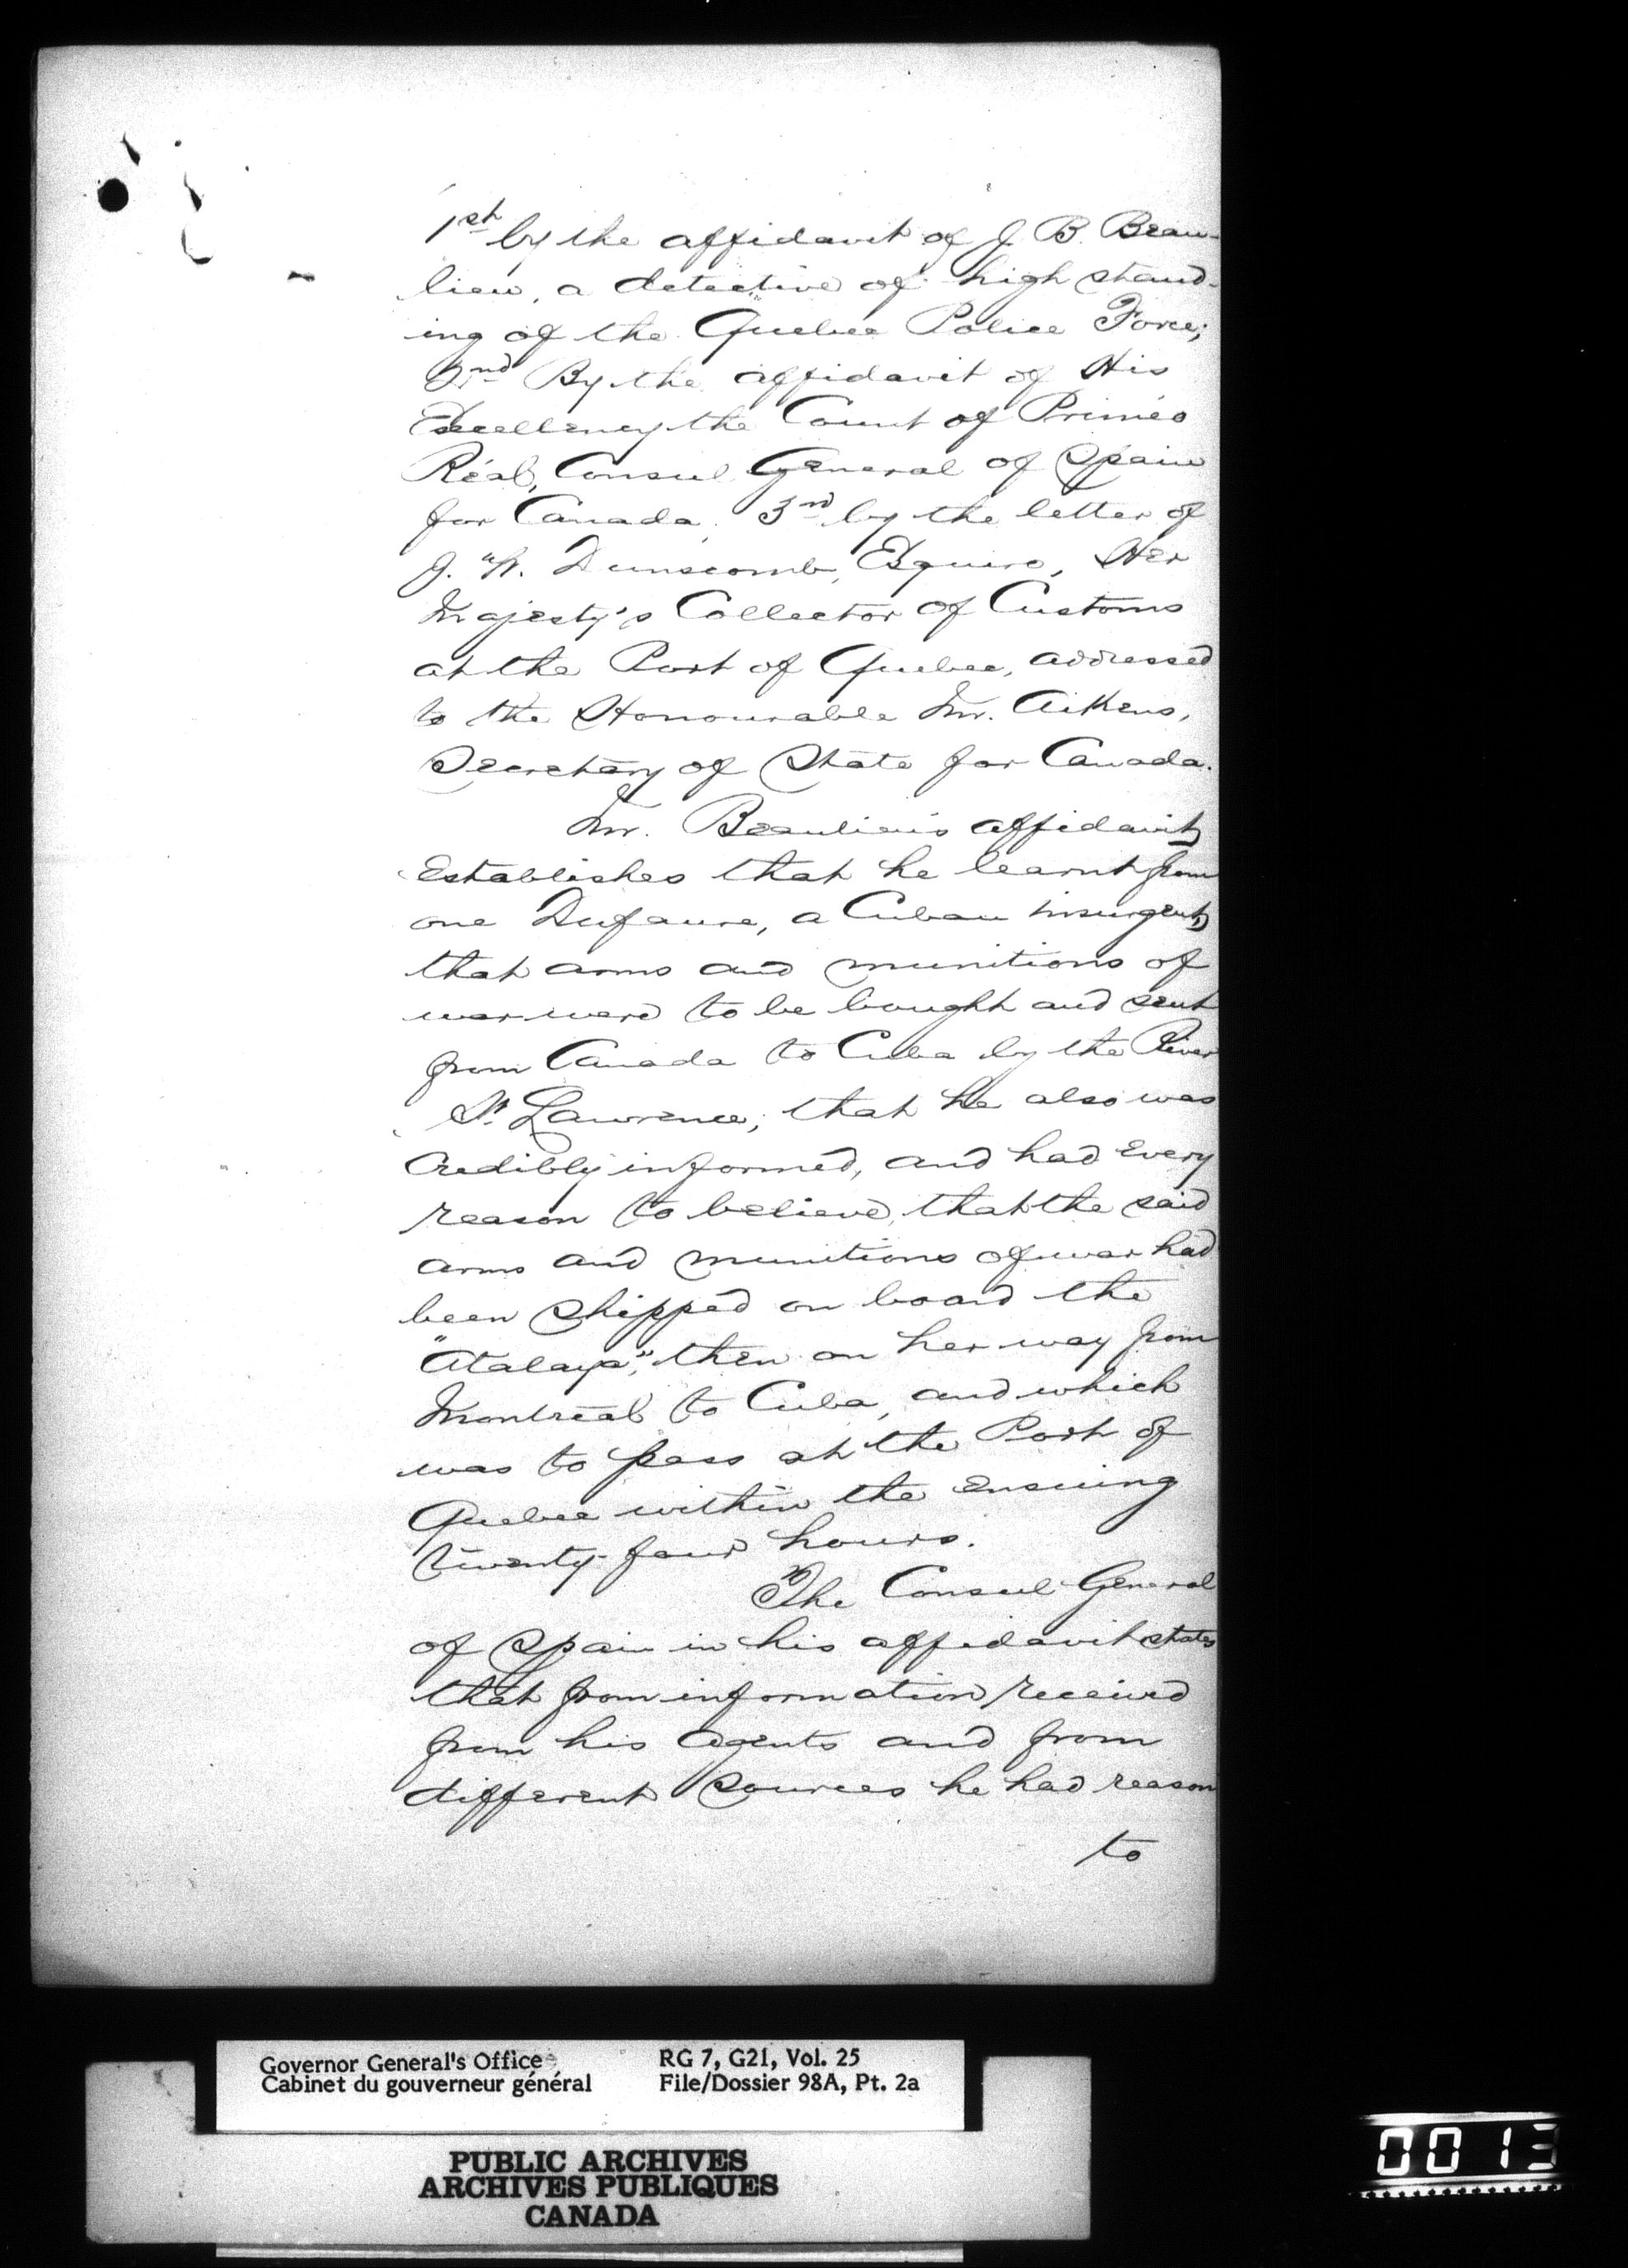 1st by the affidavit of J. B. Beau-
lieu, a detective of high stand-
ing of the Quebec Police Force;
2nd By the affidavit of His
Excellency the Count of Priméo
Réal, Consul General of Spain
for Canada; 3rd by the letter of
J. W. Dunscomb, Esquire, Her
Majesty's Collector of Customs
at the Port of Quebec, addressed
to the Honourable Mr. Aikens,
Secretary of State for Canada.
Mr. Beaulieu's affidavit
establishes that he learnt from
one Dufaure, a Cuban insurgent,
that arms and munitions of
war were to be bought and sent
from Canada to Cuba by the River
St. Lawrence; that he also was
credibly informed, and had every
reason to believe, that the said
arms and munitions of war had
been shipped on board the
"Atalaya", then on her way from
Montreal to Cuba, and which
was to pass at the Port of
Quebec within the ensuing
twenty-four hours.
The Consul General
of Spain in his affidavit states
that from information received
from his agents and from
different sources he had reason
to
Governor General's Office
Cabinet du gouverneur général
RG 7, G21, Vol. 25
File/Dossier 98A, Pt. 2a
PUBLIC ARCHIVES
ARCHIVES PUBLIQUES
CANADA
0013